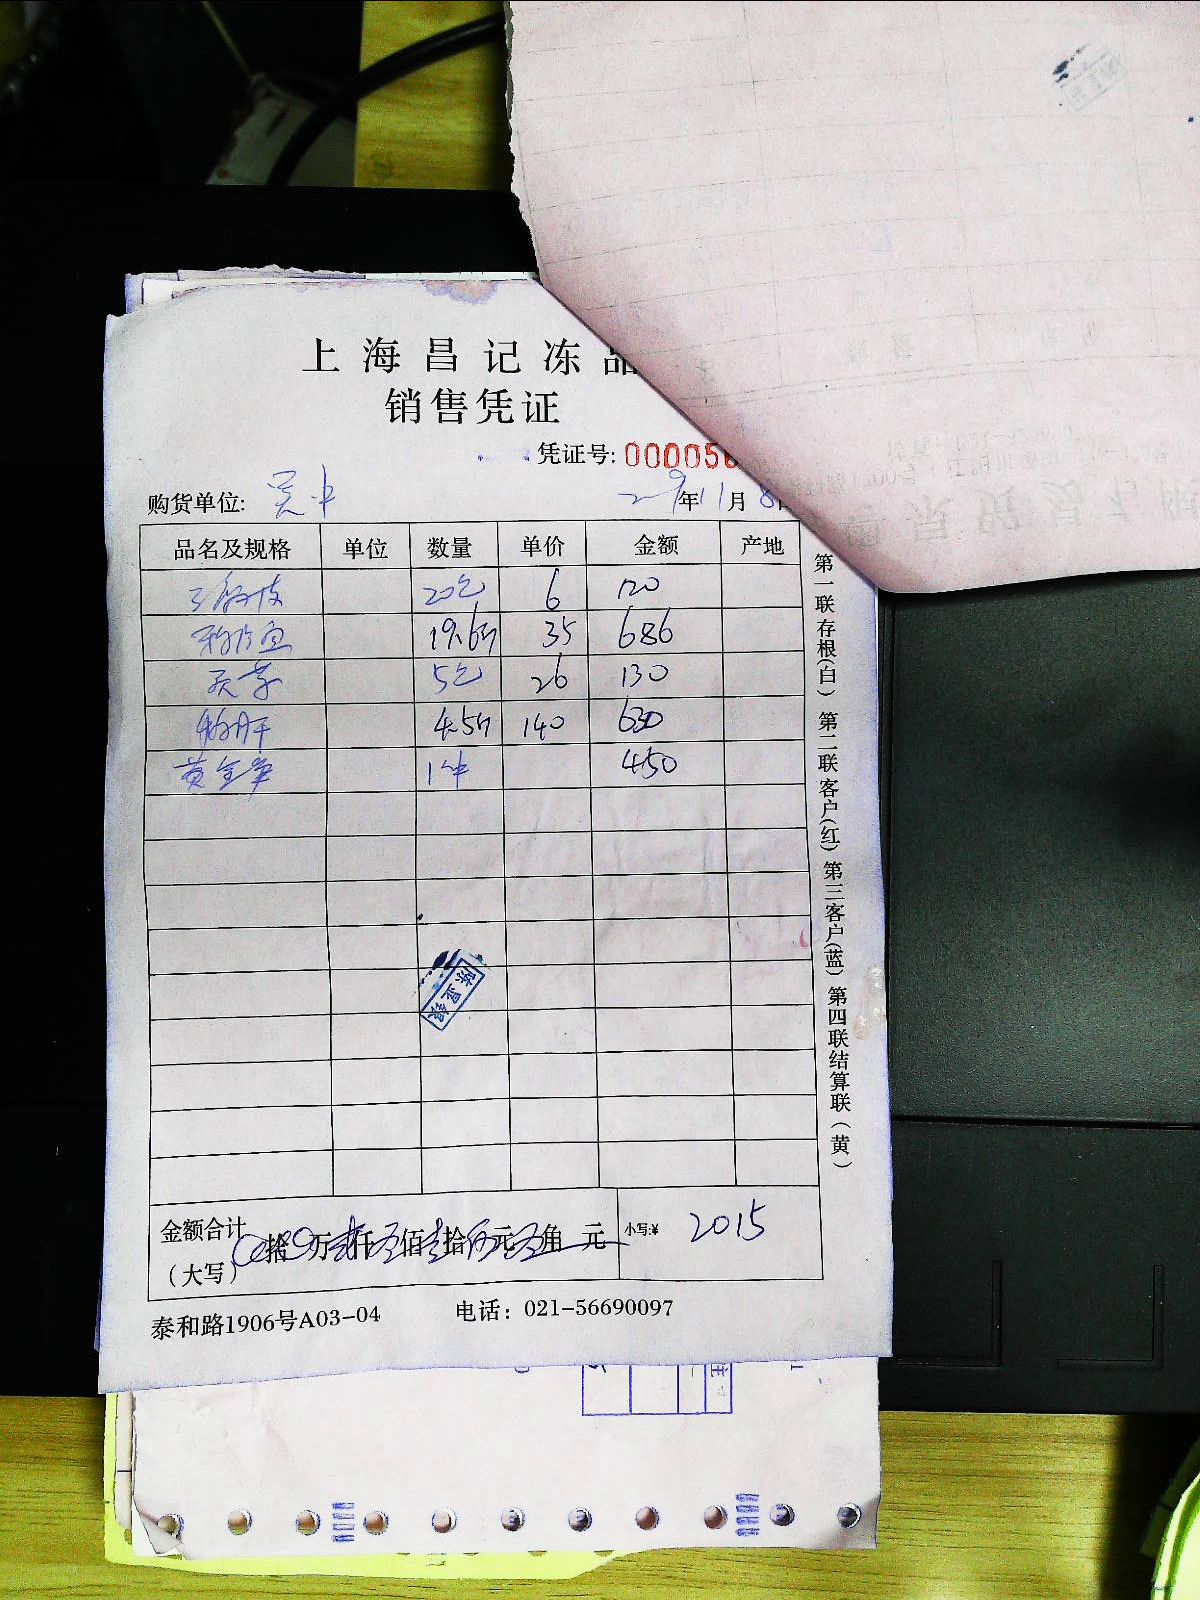 上海昌记冻品
销售凭证
凭证号: 000056
购货单位: 吴中 年11月8日
品名及规格 单位 数量 单价 金额 产地
20包 6 120
19.6斤 35 686
5包 26 130
鹅肝 4.5斤 140 630
黄金笋 1件 450
陈亚银
金额合计
(大写) 拾 万 仟 佰 拾 元 角 元 小写:¥ 2015
泰和路1906号A03-04 电话: 021-56690097
第一联存根(白) 第二联客户(红) 第三客户(蓝) 第四联结算联(黄)